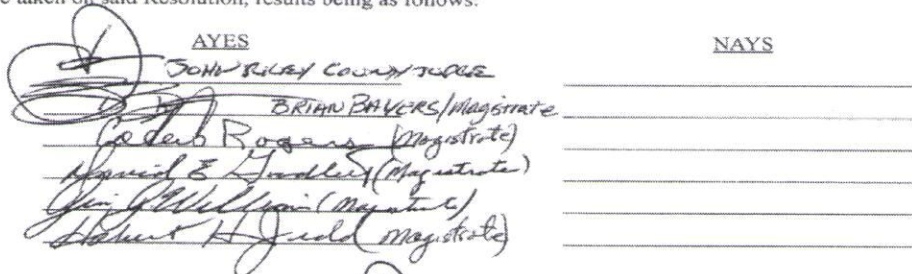 taken on said Resolution, results being as follows:
AYES NAYS
JOHN RILEY COUNTY JUDGE
BRIAN BAYERS/Magistrate
Rogers (Magistrate)
David E Goodlett (Magistrate)
Jim Williams (Magistrate)
Robert H Judd (Magistrate)